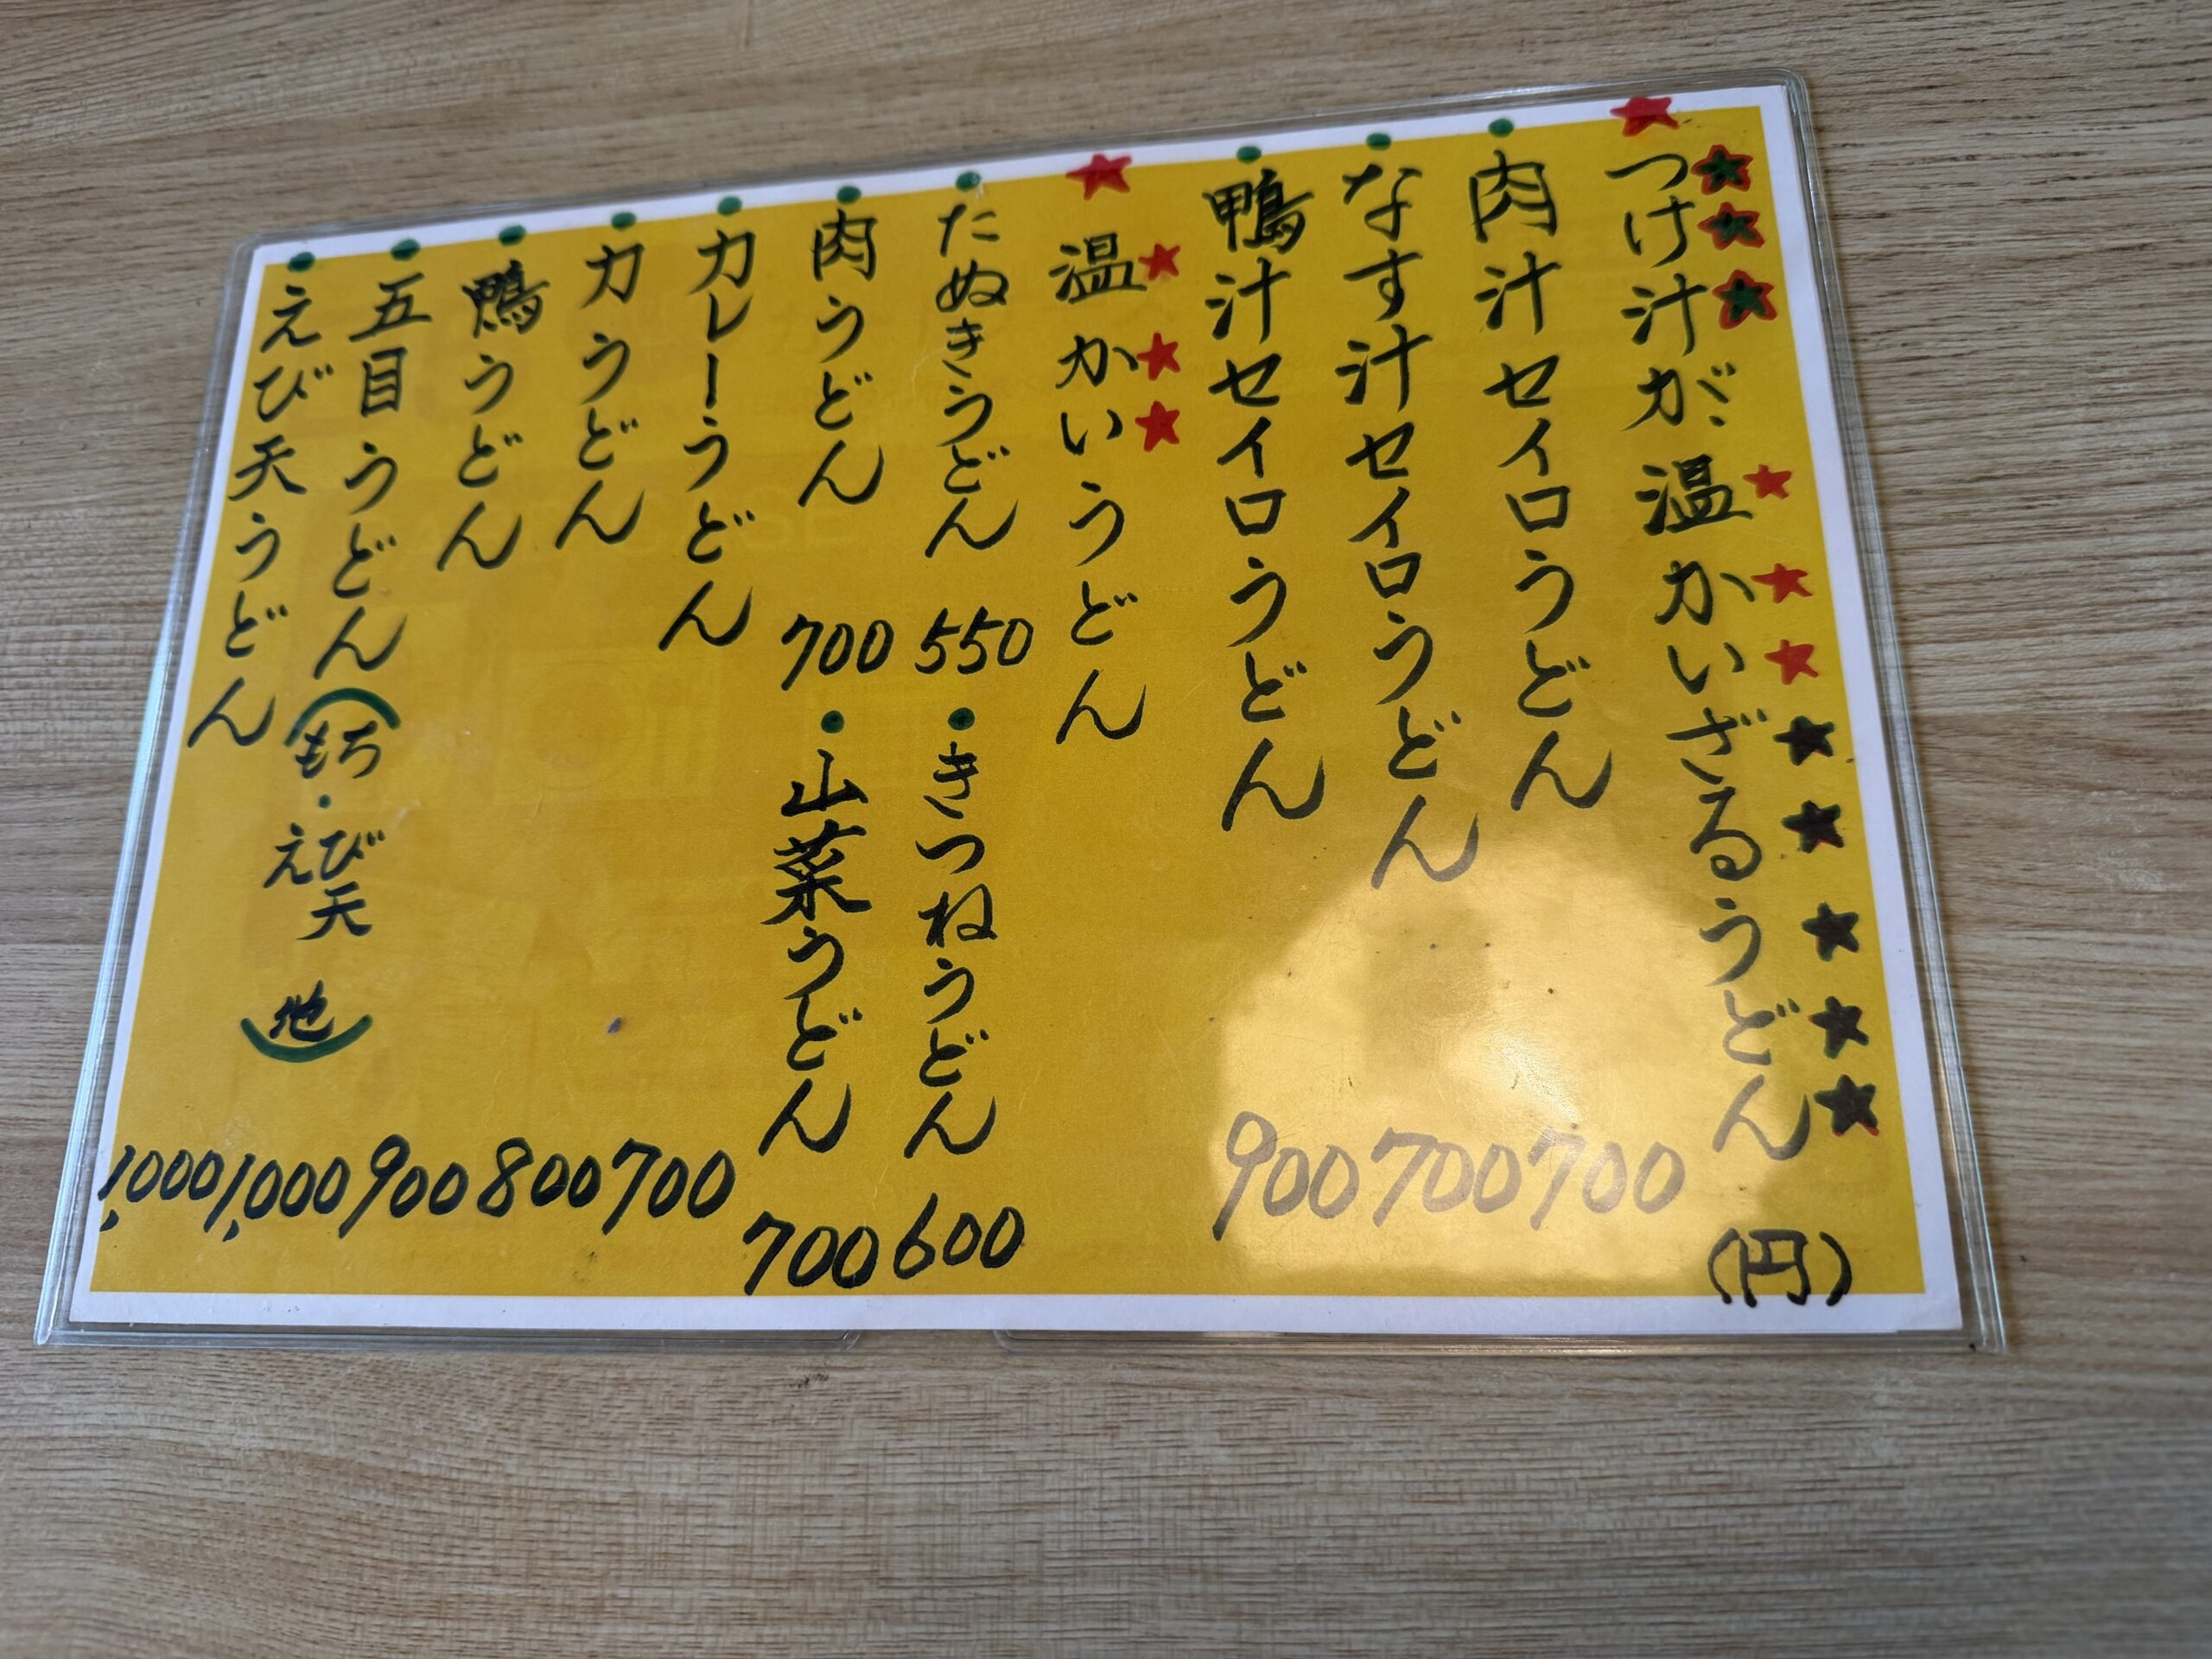 つけ汁が温かいざるうどん (円)
肉汁セイロうどん 700
なす汁セイロうどん 700
鴨汁セイロうどん 900
温かいうどん
たぬきうどん 550 ・きつねうどん 600
肉うどん 700 ・山菜うどん 700
カレーうどん 700
力うどん 800
鴨うどん 900
五目うどん (もち・えび天 他) 1,000
えび天うどん 1,000